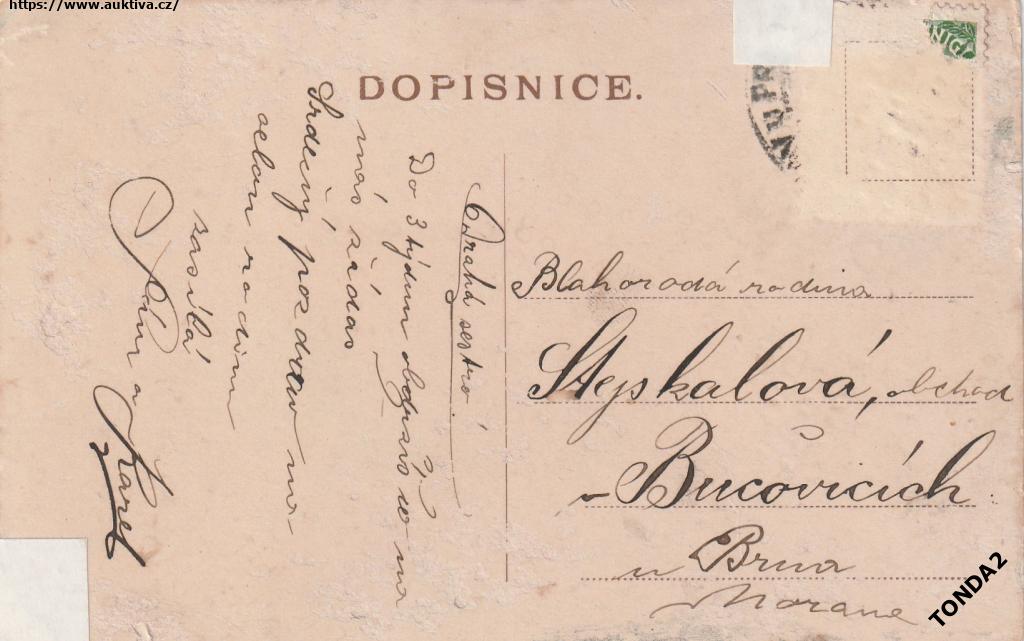 https://www.auktiva.cz/
DOPISNICE.
Drahá sestro
Do 3 týdnu na
máš žádas
Srdečný pozdrav na
celou rodinu
zasílá
a
Karel
Blahorodá rodina
Stejskalová, obchod
v Bučovicích
u Brna
Morava
TONDA2